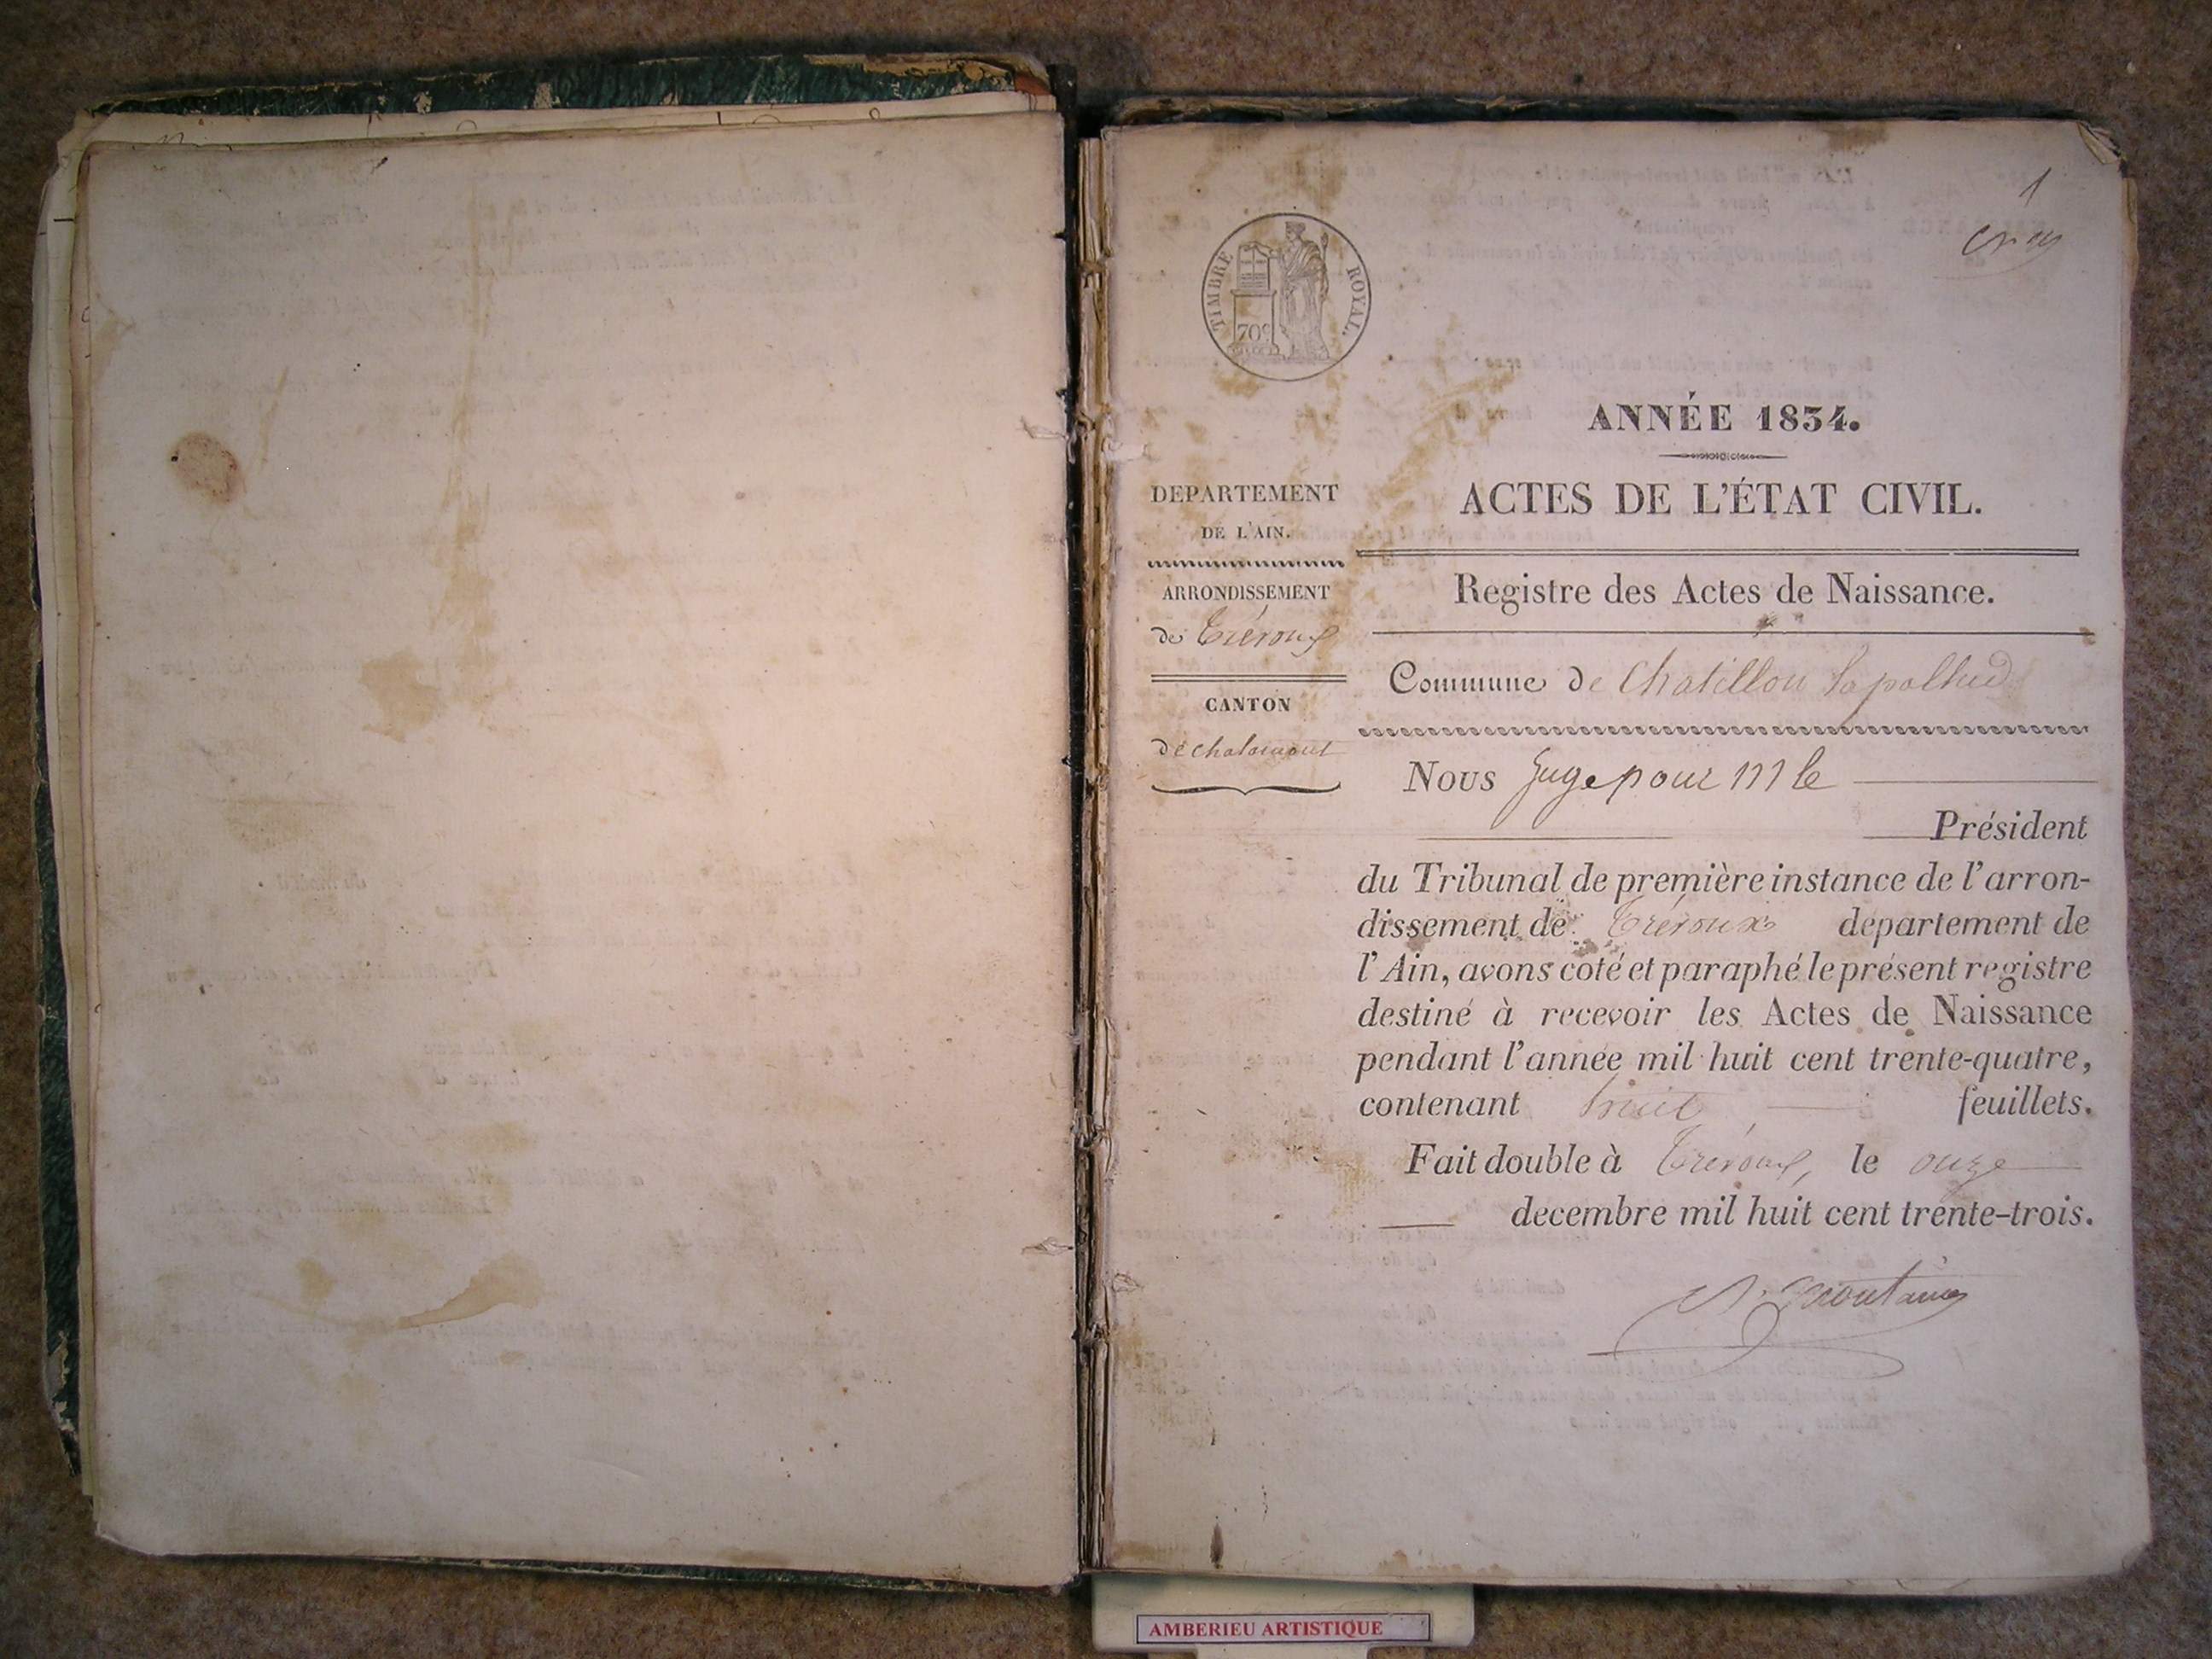 1
TIMBRE ROYAL.
70c
ANNÉE 1834.
ACTES DE L'ÉTAT CIVIL.
DEPARTEMENT
DE L'AIN.
ARRONDISSEMENT
de Trévoux
CANTON
de chalamont
Registre des Actes de Naissance.
Commune de Chatillon lapallud
Nous Juge pour M le
Président
du Tribunal de première instance de l'arron-
dissement de Trévoux departement de
l'Ain, avons coté et paraphé le présent registre
destiné à recevoir les Actes de Naissance
pendant l'année mil huit cent trente-quatre,
contenant huit feuillets.
Fait double à Trévoux, le onze
decembre mil huit cent trente-trois.
AMBERIEU ARTISTIQUE